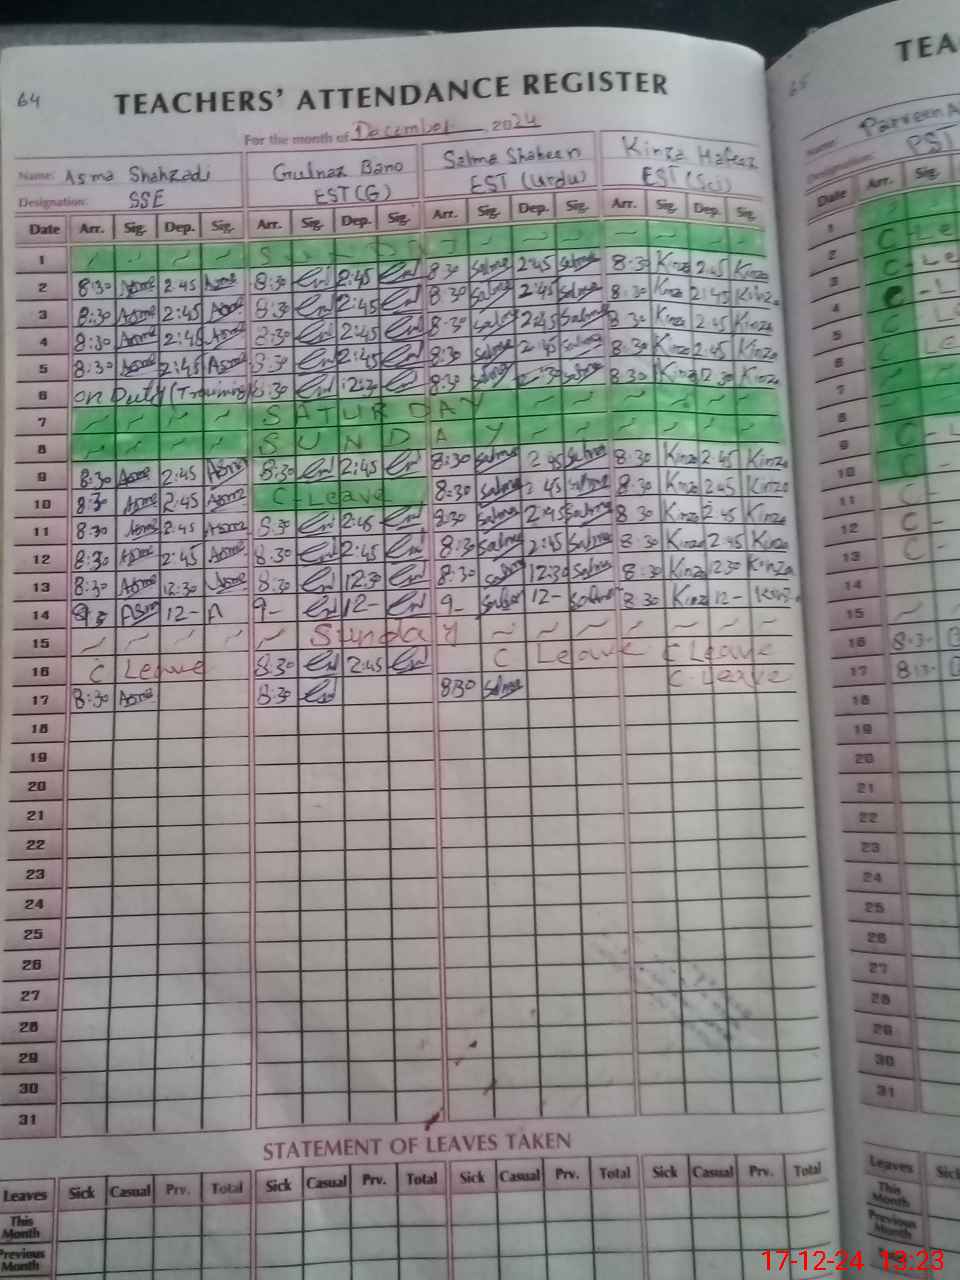 64
TEACHERS' ATTENDANCE REGISTER
For the month of December 2024
Name: Asma Shahzadi Gulnaz Bano Salma Shaheen Kinza Hafeez
Designation: SSE EST(G) EST (Urdu) EST (Sci)
Date Arr. Sig. Dep. Sig. Arr. Sig. Dep. Sig. Arr. Sig. Dep. Sig. Arr. Sig. Dep. Sig.
1 SUNDAY
2 8:30 Asma 2:45 Asma 8:30 2:45 8:30 Salma 2:45 Salma 8:30 Kinza 2:45 Kinza
3 8:30 Asma 2:45 Asma 8:30 2:45 8:30 Salma 2:45 Salma 8:30 Kinza 2:45 Kinza
4 8:30 Asma 2:45 Asma 8:30 2:45 8:30 Salma 2:45 Salma 8:30 Kinza 2:45 Kinza
5 8:30 Asma 2:45 Asma 8:30 2:45 8:30 Salma 2:45 Salma 8:30 Kinza 2:45 Kinza
6 on Duty (Training) 8:30 12:30 8:30 Salma 12:30 Salma 8:30 Kinza 12 30 Kinza
7 SATURDAY
8 SUNDAY
9 8:30 Asma 2:45 Asma 8:30 2:45 8:30 Salma 2 45 Salma 8:30 Kinza 2 45 Kinza
10 8:30 Asma 2:45 Asma C-Leave 8:30 Salma 2 45 Salma 8:30 Kinza 2:45 Kinza
11 8:30 Asma 2:45 Asma 8:30 2:45 8:30 Salma 2:45 Salma 8 30 Kinza 2 45 Kinza
12 8:30 Asma 2:45 Asma 8:30 2:45 8:30 Salma 2:45 Salma 8:30 Kinza 2:45 Kinza
13 8:30 Asma 12:30 Asma 8:30 12:30 8:30 Salma 12:30 Salma 8:30 Kinza 12 30 Kinza
14 Asma 12- A 9- 12- 9- Salma 12- Salma 8:30 Kinza 12- Kinza
15 Sunday
16 C Leave 8:30 2:45 C Leave C Leave
17 8:30 Asma 8:30 830 Salma C-Leave
18
19
20
21
22
23
24
25
26
27
28
29
30
31
STATEMENT OF LEAVES TAKEN
Leaves Sick Casual Prv. Total Sick Casual Prv. Total Sick Casual Prv. Total Sick Casual Prv. Total
This Month
Previous Month
65
TEA
Name: Parveen A
Designation: PST
Date Arr. Sig.
1
2 C-Le
3 C-Le
4 C-L
5 C Le
6 C Le
7
8
9 C-L
10 C-
11 C-
12 C-
13 C-
14
15
16 8:30
17 8:30
18
19
20
21
22
23
24
25
26
27
28
29
30
31
Leaves Sic
This Month
Previous Month
17-12-24 13:23